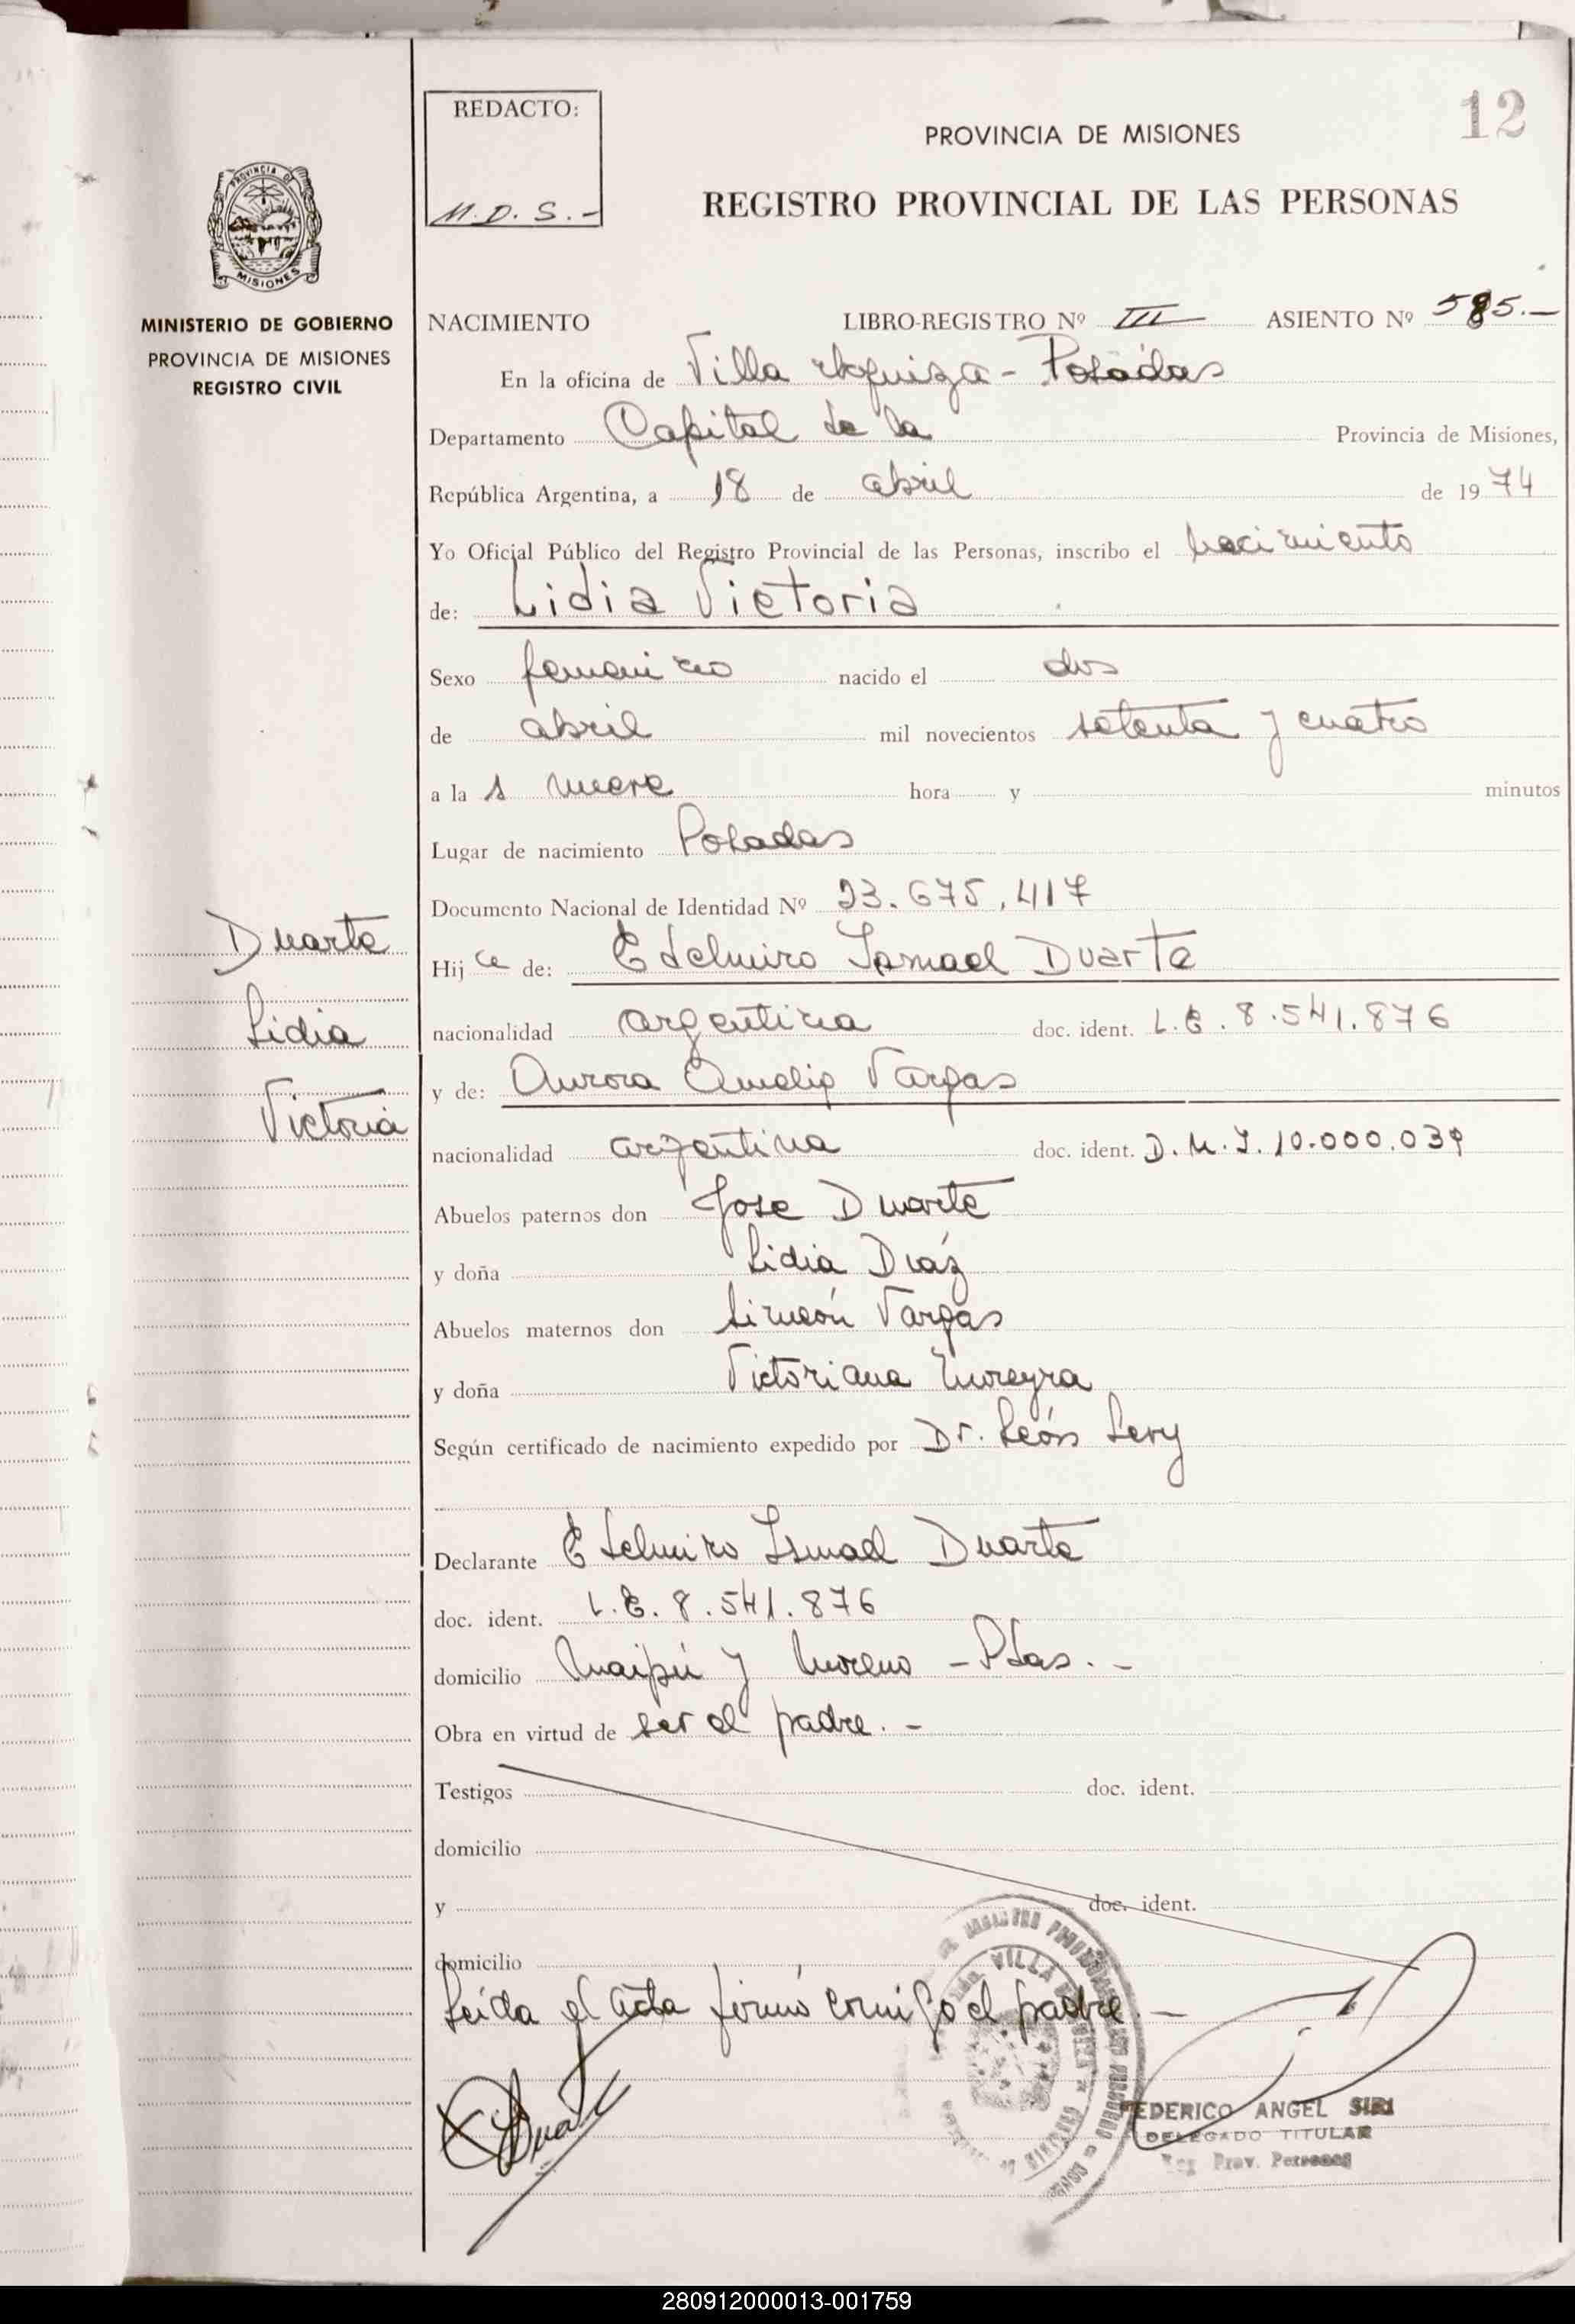 REDACTO:
M.D.S.-
12
PROVINCIA DE MISIONES
REGISTRO PROVINCIAL DE LAS PERSONAS
PROVINCIA DE
MISIONES
MINISTERIO DE GOBIERNO
PROVINCIA DE MISIONES
REGISTRO CIVIL
NACIMIENTO LIBRO-REGISTRO Nº III ASIENTO Nº 585.-
En la oficina de Villa Urquiza - Posadas
Departamento Capital de la Provincia de Misiones,
República Argentina, a 18 de abril de 1974
Yo Oficial Público del Registro Provincial de las Personas, inscribo el nacimiento
de: Lidia Victoria
Sexo femenino nacido el dos
de abril mil novecientos setenta y cuatro
a la s nueve hora y minutos
Lugar de nacimiento Posadas
Documento Nacional de Identidad Nº 23.675.417
Duarte
Lidia
Victoria
Hija de: Edelmiro Ismael Duarte
nacionalidad argentina doc. ident. L.E. 8.541.876
y de: Aurora Amelia Vargas
nacionalidad argentina doc. ident. D.N.I. 10.000.039
Abuelos paternos don Jose Duarte
y doña Lidia Diáz
Abuelos maternos don Simeón Vargas
y doña Victoriana Moreyra
Según certificado de nacimiento expedido por Dr. León Levy
Declarante Edelmiro Ismael Duarte
doc. ident. L.E. 8.541.876
domicilio Maipú y Moreno - Pdas. -
Obra en virtud de ser el padre. -
Testigos doc. ident.
domicilio
y doc. ident.
domicilio
Leída el acta firmó conmigo el padre. -
Duarte
VILLA
FEDERICO ANGEL SIRI
DELEGADO TITULAR
Reg Prov. Personas
280912000013-001759